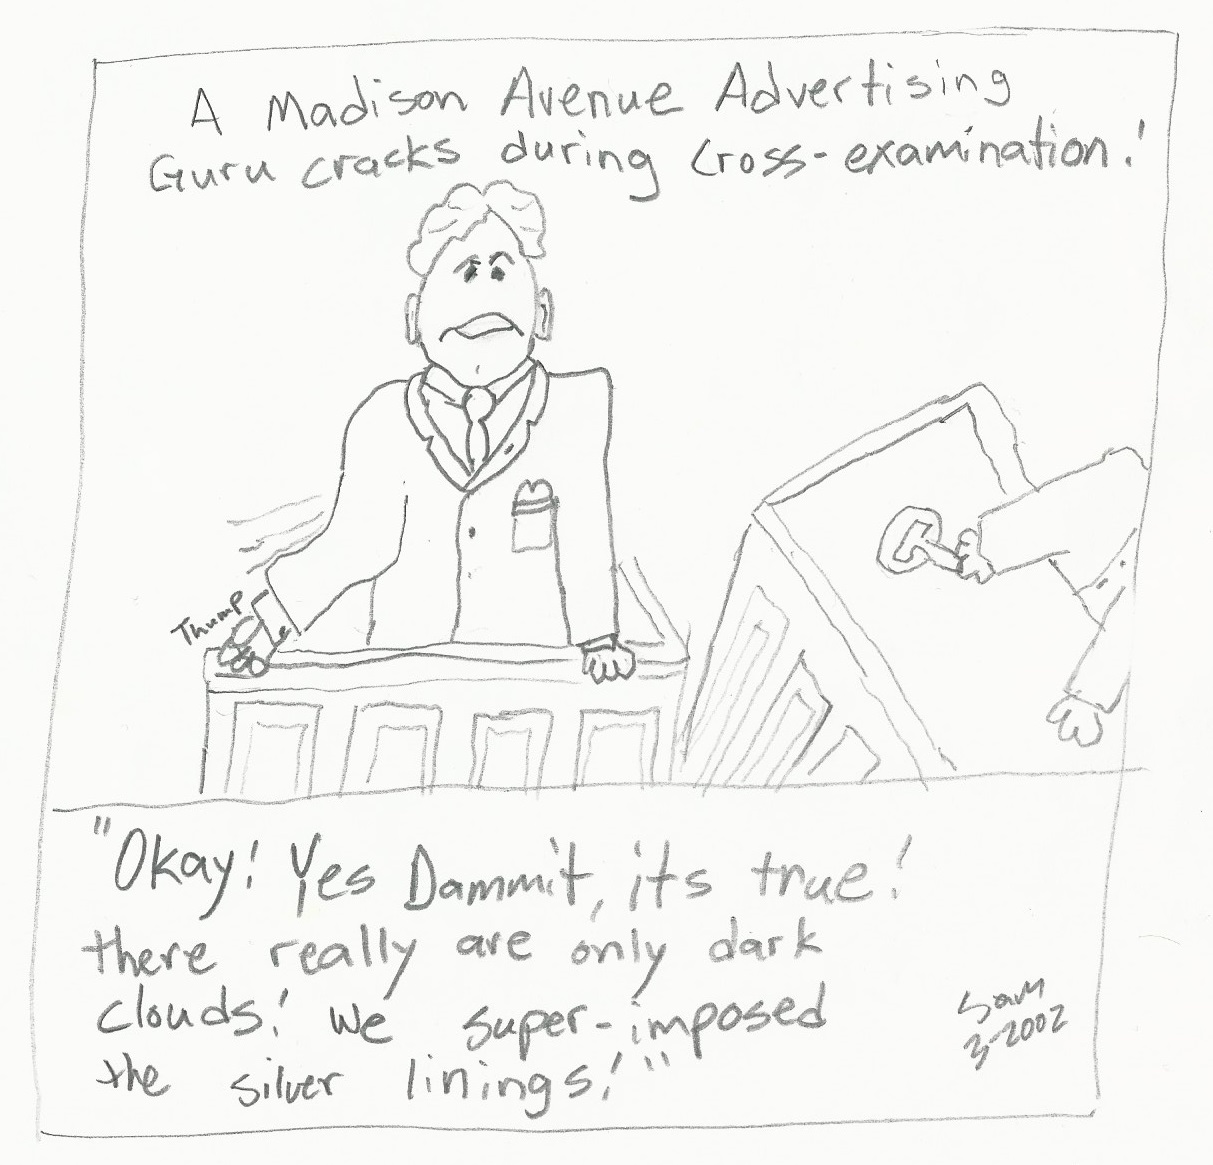 A Madison Avenue Advertising
Guru cracks during cross-examination!
Thump
"Okay! Yes Dammit, its true!
there really are only dark
clouds! We super-imposed
the silver linings!"
Sam
3-2002